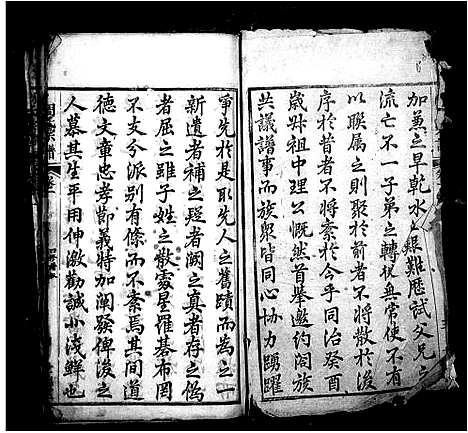 加蕙之旱乾水溢艱難歷試父兄之
流亡不一子弟之轉徙無常使不有
以聯屬之則聚於前者不將散於後
序於昔者不將紊於今乎同治癸酉
歲叔祖中理公慨然首舉邀約闔族
共議譜事而族眾皆同心協力踴躍
爭先於是取先人之舊蹟而為之一
新遺者補之疑者闕之真者存之偽
者屈之雖子姓之散處星羅碁布罔
不支分派別有條而不紊焉其間道
德文章忠孝節義特加闡發俾後之
人慕其生平用伸激勸誠非淺鮮也
譜